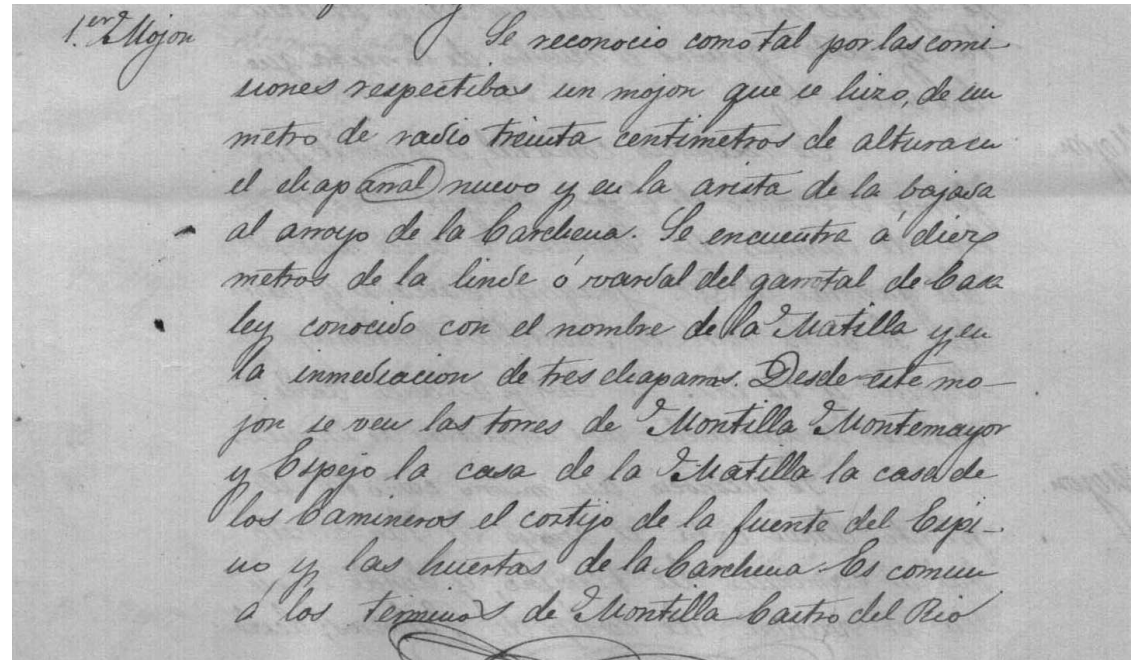 1.er Mojon
Se reconocio como tal por las comi
siones respectibas un mojon que se hizo, de un
metro de radio treinta centimetros de altura en
el chaparral nuevo y en la arista de la bajada
al arroyo de la Carchena. Se encuentra á diez
metros de la linde ó vardal del garrotal de Caza
ley conocido con el nombre de la Matilla y en
la inmediacion de tres chaparros. Desde este mo-
jon se ven las torres de Montilla Montemayor
y Espejo la casa de la Matilla la casa de
los Camineros el cortijo de la fuente del Espi-
no y las huertas de la Carchena. Es comun
á los terminos de Montilla Castro del Rio